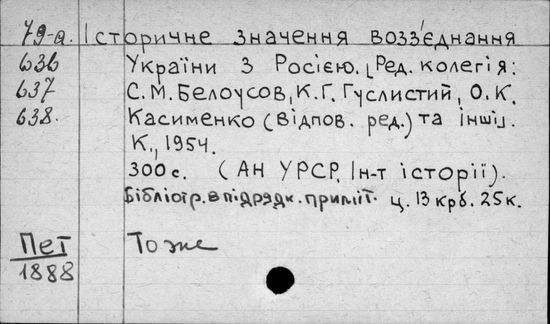 79-а. Історичне значення возз'єднання
636 України з Росією. [Ред. колегія:
637 С.М. Белоусов, К.Г. Гуслистий, О.К.
638. Касименко (відпов. ред.) та інші].
К., 1954.
300 с. (АН УРСР. Ін-т історії).
Бібліогр. в підрядк. приміт. ц. 13 крб. 25к.
Пет То же
1888